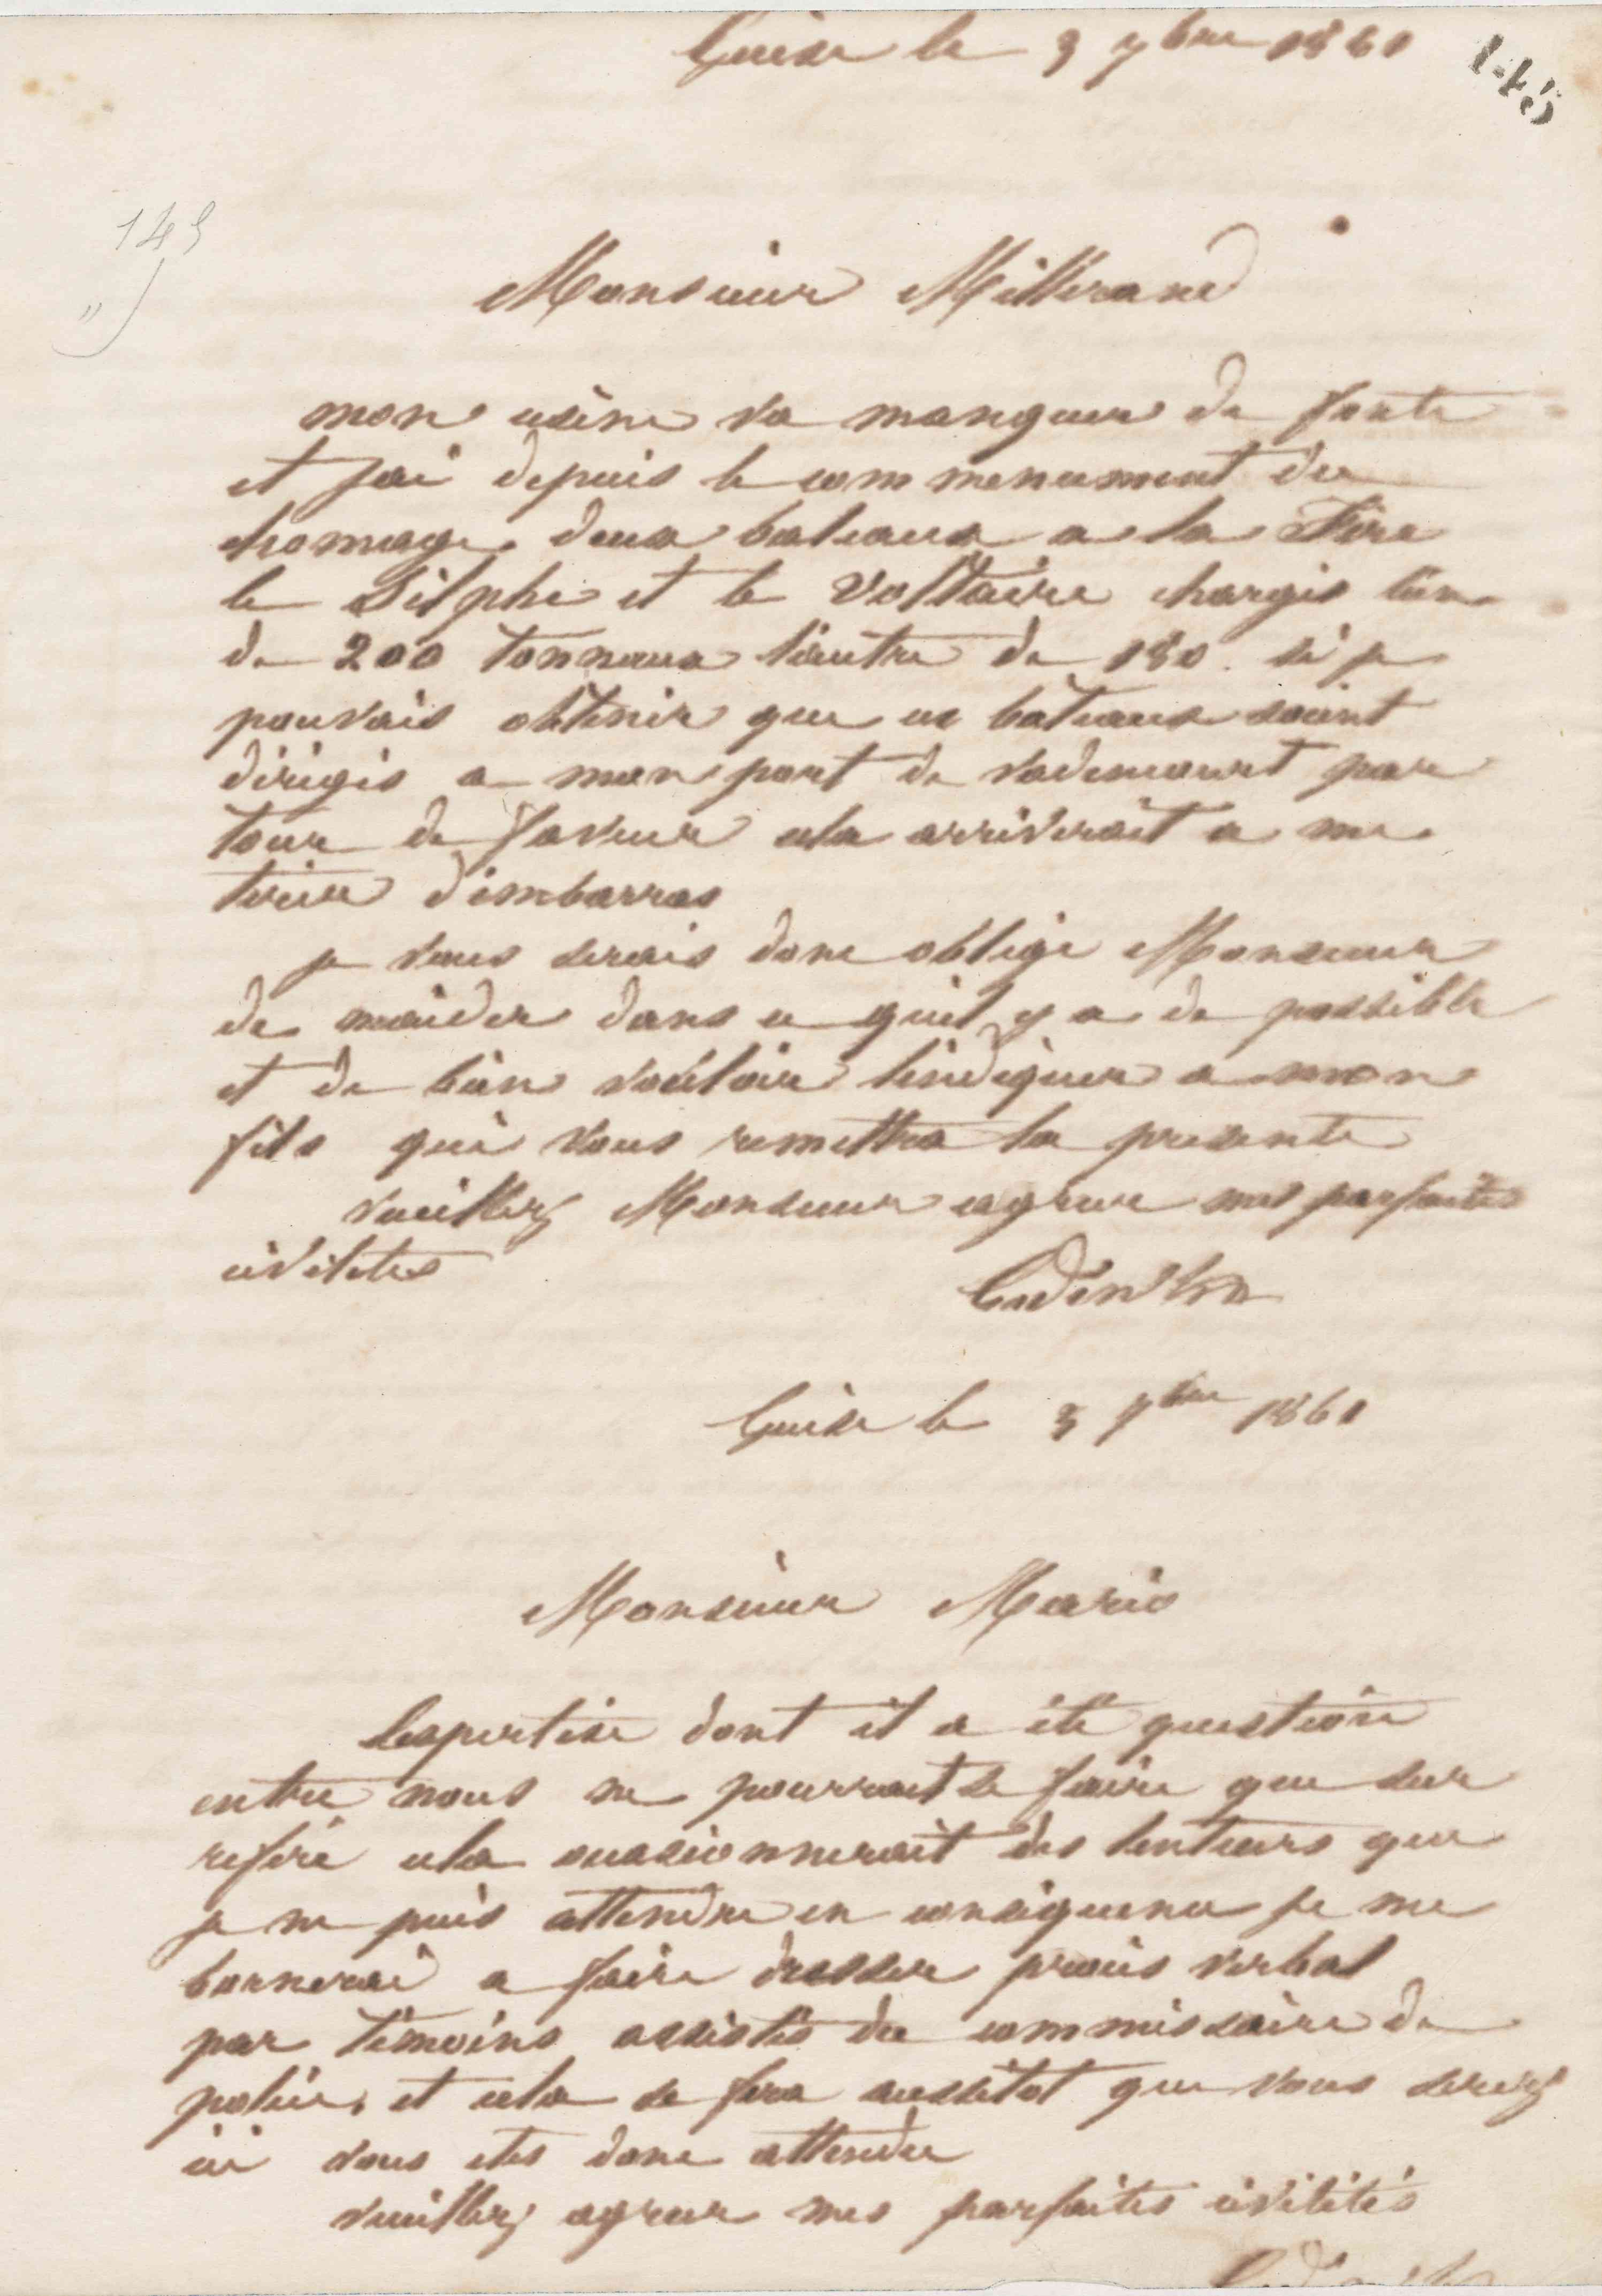 Guise le 3 7bre 1861
145
149
Monsieur Millerand
mon usine va manquer de fonte
et jai depuis le commencement du
chomage deux bateaux a la Fère
le Silphe et le Voltaire chargés lun
de 200 tonneaux lautre de 180. si je
pouvais obtenir que ces bateaux soient
dirigés a mon port de vadencourt par
tour de faveur cela arriverait a me
tirer dembarras
je vous serais donc obligé Monsieur
de maider dans ce quil y a de possible
et de bien vouloir lindiquer a mon
fils qui vous remettra la presente
veuillez Monsieur agreer mes parfaites
civilites
Godin
Guise le 3 7bre 1861
Monsieur
Lexpertise dont il a été question
entre nous ne pourrait se faire que sur
referé cela occasionnerait des lenteurs que
je ne puis attendre en consequence je me
bornerai a faire dresser procès verbal
par témoins assistés du commissaire de
police, et cela se fera aussitot que vous serez
ici vous etes donc attendu
veuillez agreer mes parfaites civilités